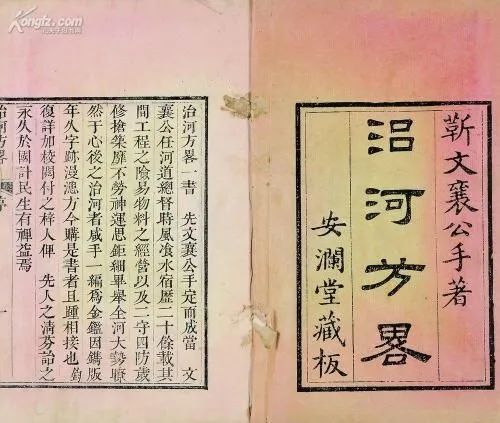 靳文襄公手著
治河方畧
安瀾堂藏板
治河方畧一書　先文襄公手定而成當　文
襄公任河道總督時風飡水宿歷二十餘載其
間工程之險易物料之經營以及二守四防歲
修搶築靡不勞神運思鉅細畢舉全河大勢瞭
然于心後之治河者咸手一編爲金鑑因鐫版
年久字跡漫漶方今購是書者且踵相接也鈞
復詳加校閱付之梓人俾　先人之清芬詒之
永久於國計民生有裨益焉
治河方畧
序
一
Kongfz.com